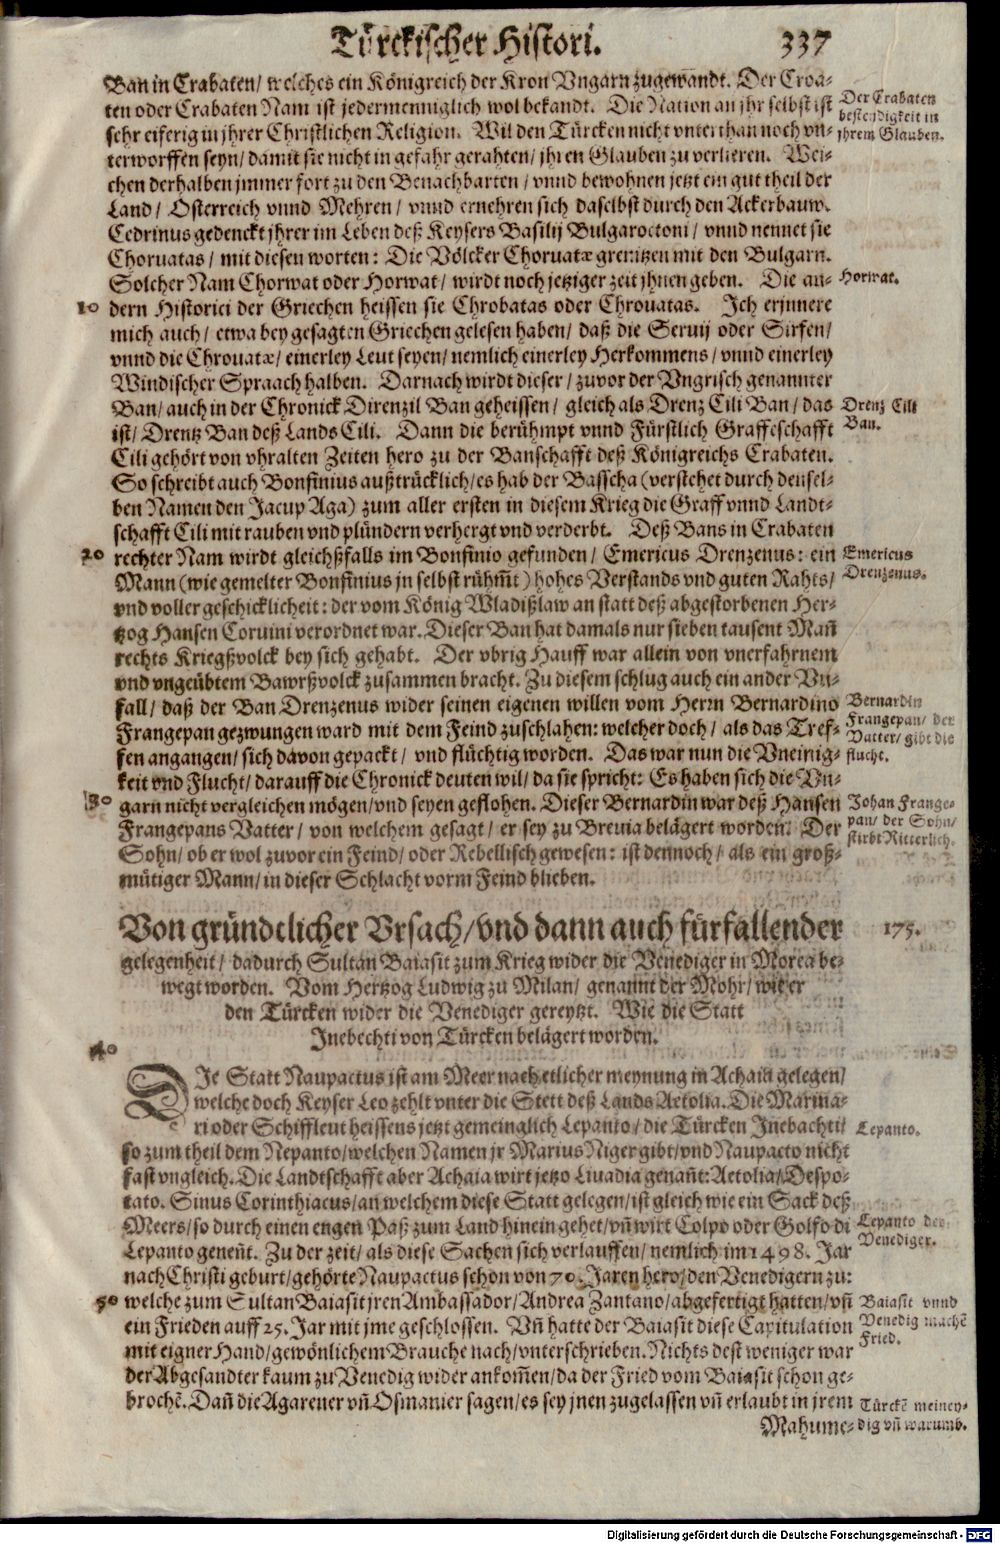 Türckischer Histori. 337
Ban in Crabaten/ welches ein Königreich der Kron Vngarn zugewañdt. Der Croa-
ten oder Crabaten Nam ist jedermenniglich wol bekandt. Die Nation an jhr selbst ist
sehr eiferig in jhrer Christlichen Religion. Wil den Türcken nicht vnterthan noch vn-
terworffen seyn/ damit sie nicht in gefahr gerahten/ jhren Glauben zu verlieren. Wei-
chen derhalben jmmer fort zu den Benachbarten/ vnnd bewohnen jetzt ein gut theil der
Land/ Osterreich vnnd Mehren/ vnnd ernehren sich daselbst durch den Ackerbauw.
Cedrinus gedenckt jhrer im Leben deß Keysers Basilij Bulgaroctoni/ vnnd nennet sie
Choruatas/ mit diesen worten: Die Völcker Choruatæ grenitzen mit den Bulgarn.
Solcher Nam Chorwat oder Horwat/ wirdt noch jetziger zeit jhnen geben. Die an-
10 dern Historici der Griechen heissen sie Chrobatas oder Chrouatas. Ich erjnnere
mich auch/ etwa bey gesagten Griechen gelesen haben/ daß die Seruij oder Sirfen/
vnnd die Chrouatæ/ einerley Leut seyen/ nemlich einerley Herkommens/ vnnd einerley
Windischer Spraach halben. Darnach wirdt dieser/ zuvor der Vngrisch genannter
Ban/ auch in der Chronick Direnzil Ban geheissen/ gleich als Drenz Cili Ban/ das
ist/ Drentz Ban deß Lands Cili. Dann die berühmpt vnnd Fürstlich Graffeschafft
Cili gehört von vhralten Zeiten hero zu der Banschafft deß Königreichs Crabaten.
So schreibt auch Bonfinius außtrücklich/ es hab der Basscha (verstehet durch densel-
ben Namen den Jacup Aga) zum aller ersten in diesem Krieg die Graff vnnd Landt-
schafft Cili mit rauben vnd plündern verhergt vnd verderbt. Deß Bans in Crabaten
20 rechter Nam wirdt gleichßfalls im Bonfinio gefunden/ Emericus Drenzenus: ein
Mann (wie gemelter Bonfinius jn selbst rühm̃t) hohes Verstands vnd guten Rahts/
vnd voller geschicklicheit: der vom König Wladißlaw an statt deß abgestorbenen Her-
tzog Hansen Coruini verordnet war. Dieser Ban hat damals nur sieben tausent Mañ
rechts Kriegßvolck bey sich gehabt. Der vbrig Hauff war allein von vnerfahrnem
vnd vngeübtem Bawrßvolck zusammen bracht. Zu diesem schlug auch ein ander Vn-
fall/ daß der Ban Drenzenus wider seinen eigenen willen vom Herrn Bernardino
Frangepan gezwungen ward mit dem Feind zuschlahen: welcher doch/ als das Tref-
fen angangen/ sich davon gepackt/ vnd flüchtig worden. Das war nun die Vneinig-
keit vnd Flucht/ darauff die Chronick deuten wil/ da sie spricht: Es haben sich die Vn-
30 garn nicht vergleichen mögen/ vnd seyen geflohen. Dieser Bernardin war deß Hansen
Frangepans Vatter/ von welchem gesagt/ er sey zu Breuia belägert worden. Der
Sohn/ ob er wol zuvor ein Feind/ oder Rebellisch gewesen: ist dennoch/ als ein groß-
mütiger Mann/ in dieser Schlacht vorm Feind blieben.
Der Crabaten
bestendigkeit in
jhrem Glauben.
Horwat.
Drenz Cili
Ban.
Emericus
Drenzenus.
Bernardin
Frangepan/ der
Vatter/ gibt die
flucht.
Johan Frange-
pan/ der Sohn/
stirbt Ritterlich.
Von gründtlicher Vrsach/ vnd dann auch fürfallender 175.
gelegenheit/ dadurch Sultan Baiasit zum Krieg wider die Venediger in Morea be-
wegt worden. Vom Hertzog Ludwig zu Milan/ genannt der Mohr/ wie er
den Türcken wider die Venediger gereytzt. Wie die Statt
Inebechti von Türcken belägert worden.
40
DIe Statt Naupactus ist am Meer nach etlicher meynung in Achaia gelegen/
welche doch Keyser Leo zehlt vnter die Stett deß Lands Aetolia. Die Marina-
ri oder Schiffleut heissens jetzt gemeinglich Lepanto/ die Türcken Inebachti/
so zum theil dem Nepanto/ welchen Namen jr Marius Niger gibt/ vnd Naupacto nicht
fast vngleich. Die Landtschafft aber Achaia wirt jetzo Liuadia genañt: Aetolia/ Despo-
tato. Sinus Corinthiacus/ an welchem diese Statt gelegen/ ist gleich wie ein Sack deß
Meers/ so durch einen engen Paß zum Land hinein gehet/ vñ wirt Colpo oder Golfo di
Lepanto geneñt. Zu der zeit/ als diese Sachen sich verlauffen/ nemlich im 1498. Jar
nach Christi geburt/ gehörte Naupactus schon von 70. Jaren hero/ den Venedigern zu:
50 welche zum Sultan Baiasit jren Ambassador/ Andrea Zantano/ abgefertigt hatten/ vñ
ein Frieden auff 25. Jar mit jme geschlossen. Vñ hatte der Baiasit diese Capitulation
mit eigner Hand/ gewönlichem Brauche nach/ vnterschrieben. Nichts dest weniger war
der Abgesandter kaum zu Venedig wider ankom̃en/ da der Fried vom Baiasit schon ge-
brochẽ. Dañ die Agarener vñ Osmanier sagen/ es sey jnen zugelassen vñ erlaubt in jrem
Mahume-
Lepanto.
Lepanto der
Venediger.
Baiasit vnnd
Venedig machẽ
Fried.
Türckẽ meiney-
dig vñ warumb.
Digitalisierung gefördert durch die Deutsche Forschungsgemeinschaft - DFG